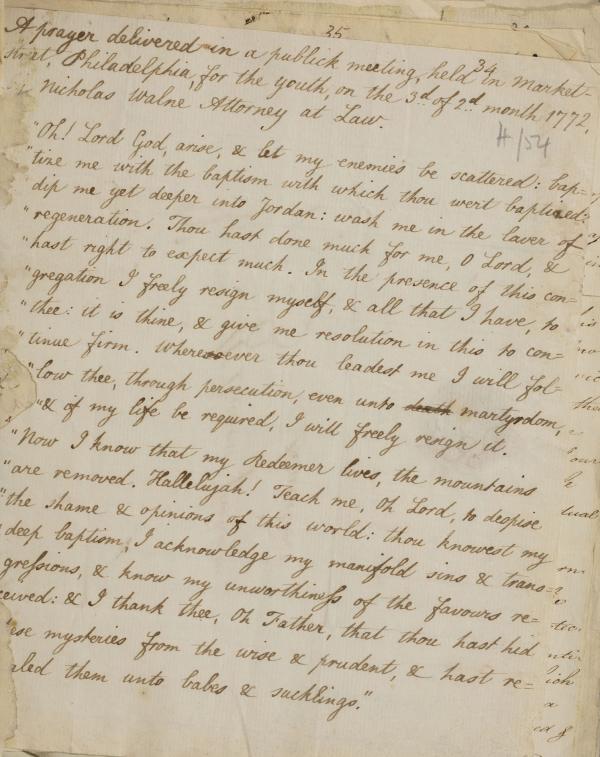 35
34
A prayer delivered in a publick meeting, held in Market-
street, Philadelphia, for the youth, on the 3d of 2d month 1772,
Nicholas Walne Attorney at Law.
H/54
"Oh! Lord God, arise, & let my enemies be scattered: bap=
"tize me with the baptism with which thou wert baptized:
dip me yet deeper into Jordan: wash me in the laver of
"regeneration. Thou hast done much for me, O Lord, &
"hast right to expect much. In the presence of this con=
"gregation I freely resign myself, & all that I have, to
"thee: it is thine, & give me resolution in this to con=
"tinue firm. Wheresoever thou leadest me I will fol=
"low thee, through persecution, even unto death martyrdom,
"& if my life be required, I will freely resign it.
"Now I know that my Redeemer lives, the mountains
"are removed. Hallelujah! Teach me, Oh Lord, to despise
"the shame & opinions of this world: thou knowest my
deep baptism, I acknowledge my manifold sins & trans=
gressions, & know my unworthiness of the favours re=
ceived: & I thank thee, Oh Father, that thou hast hid
ese mysteries from the wise & prudent, & hast re=
aled them unto babes & sucklings."